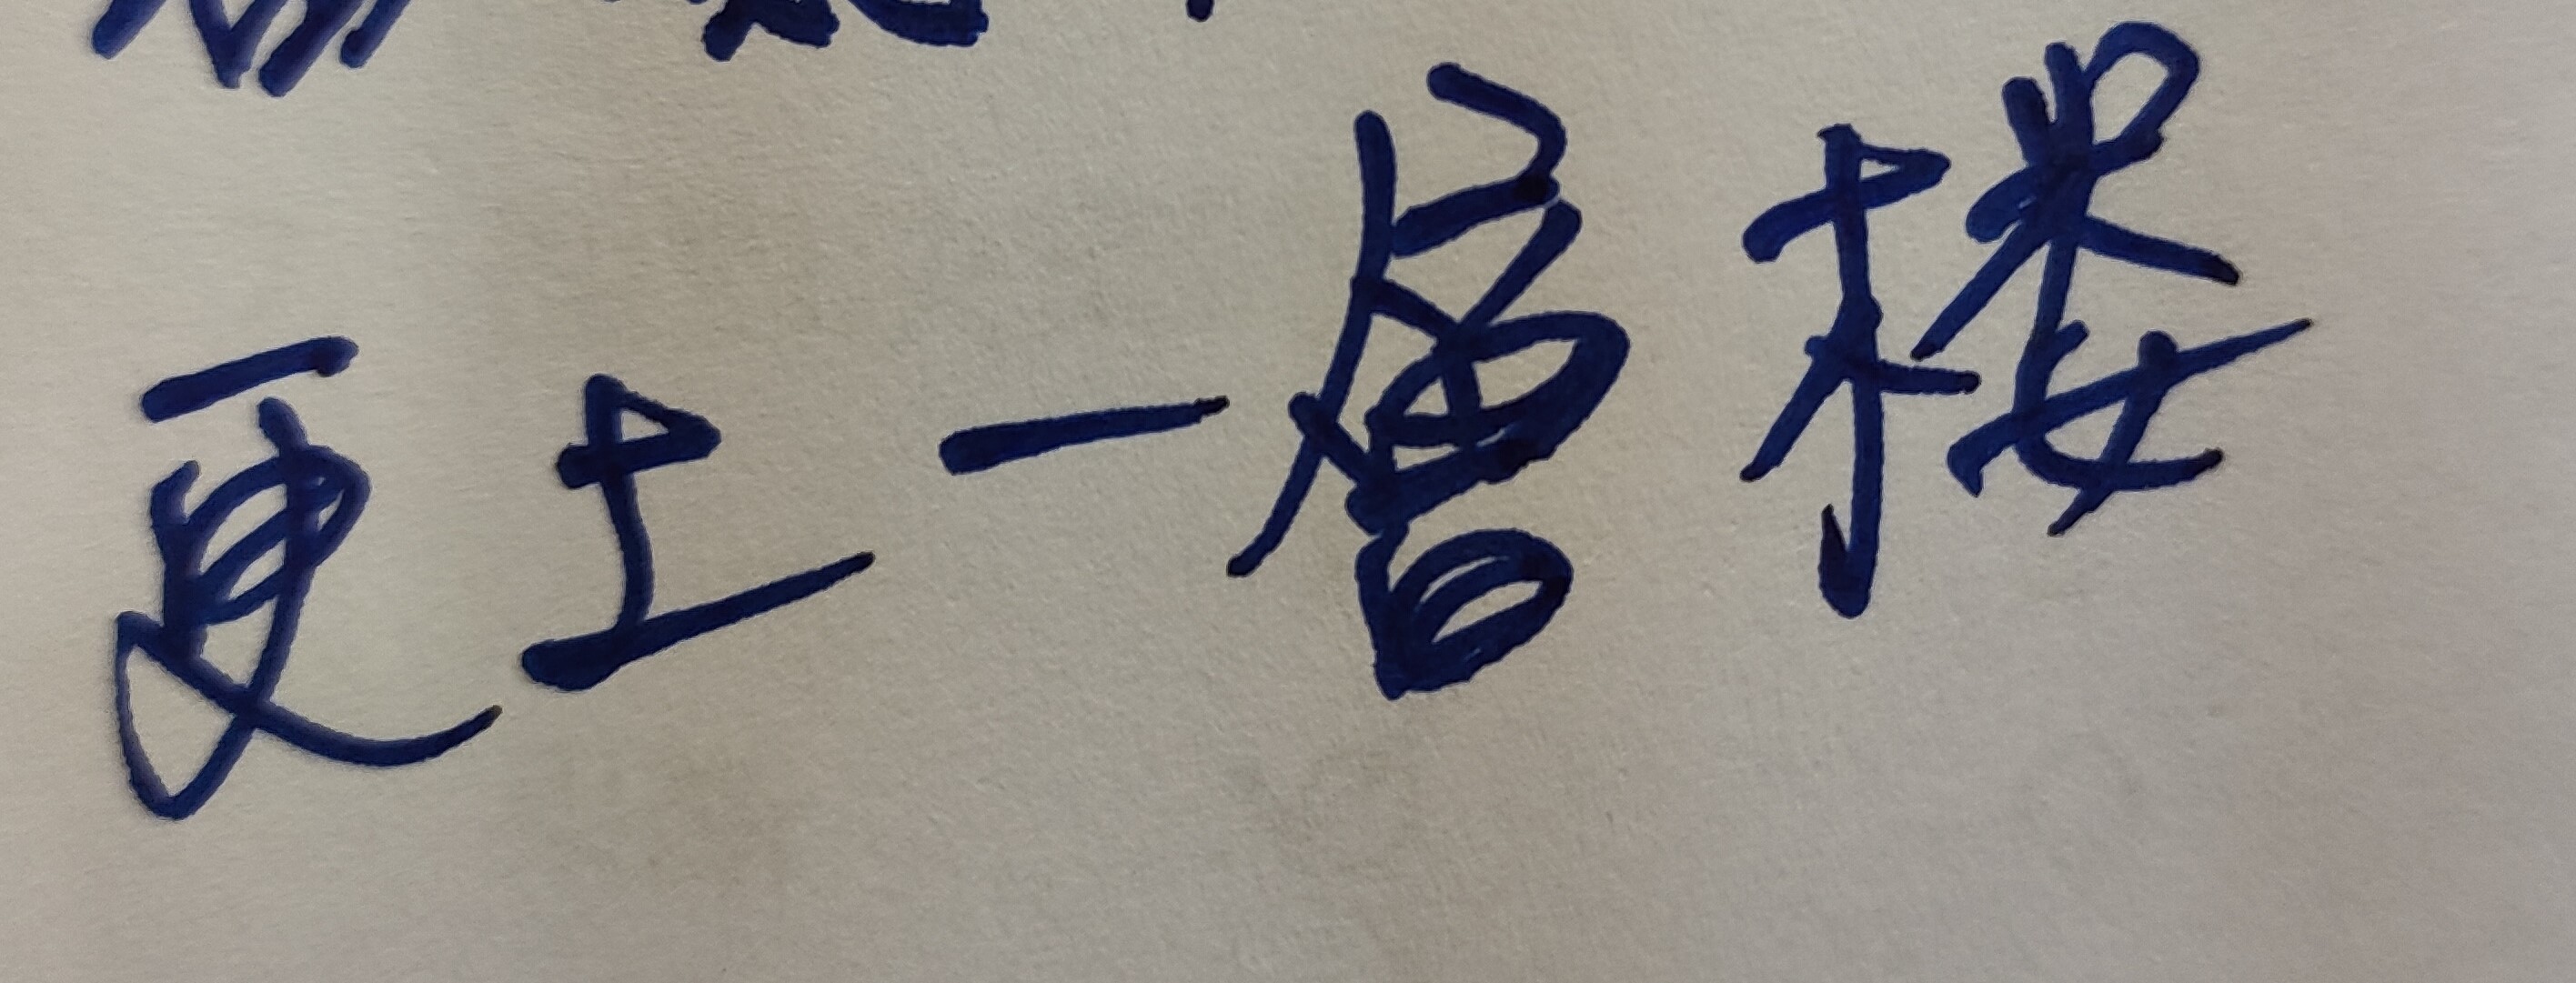 更上一層楼